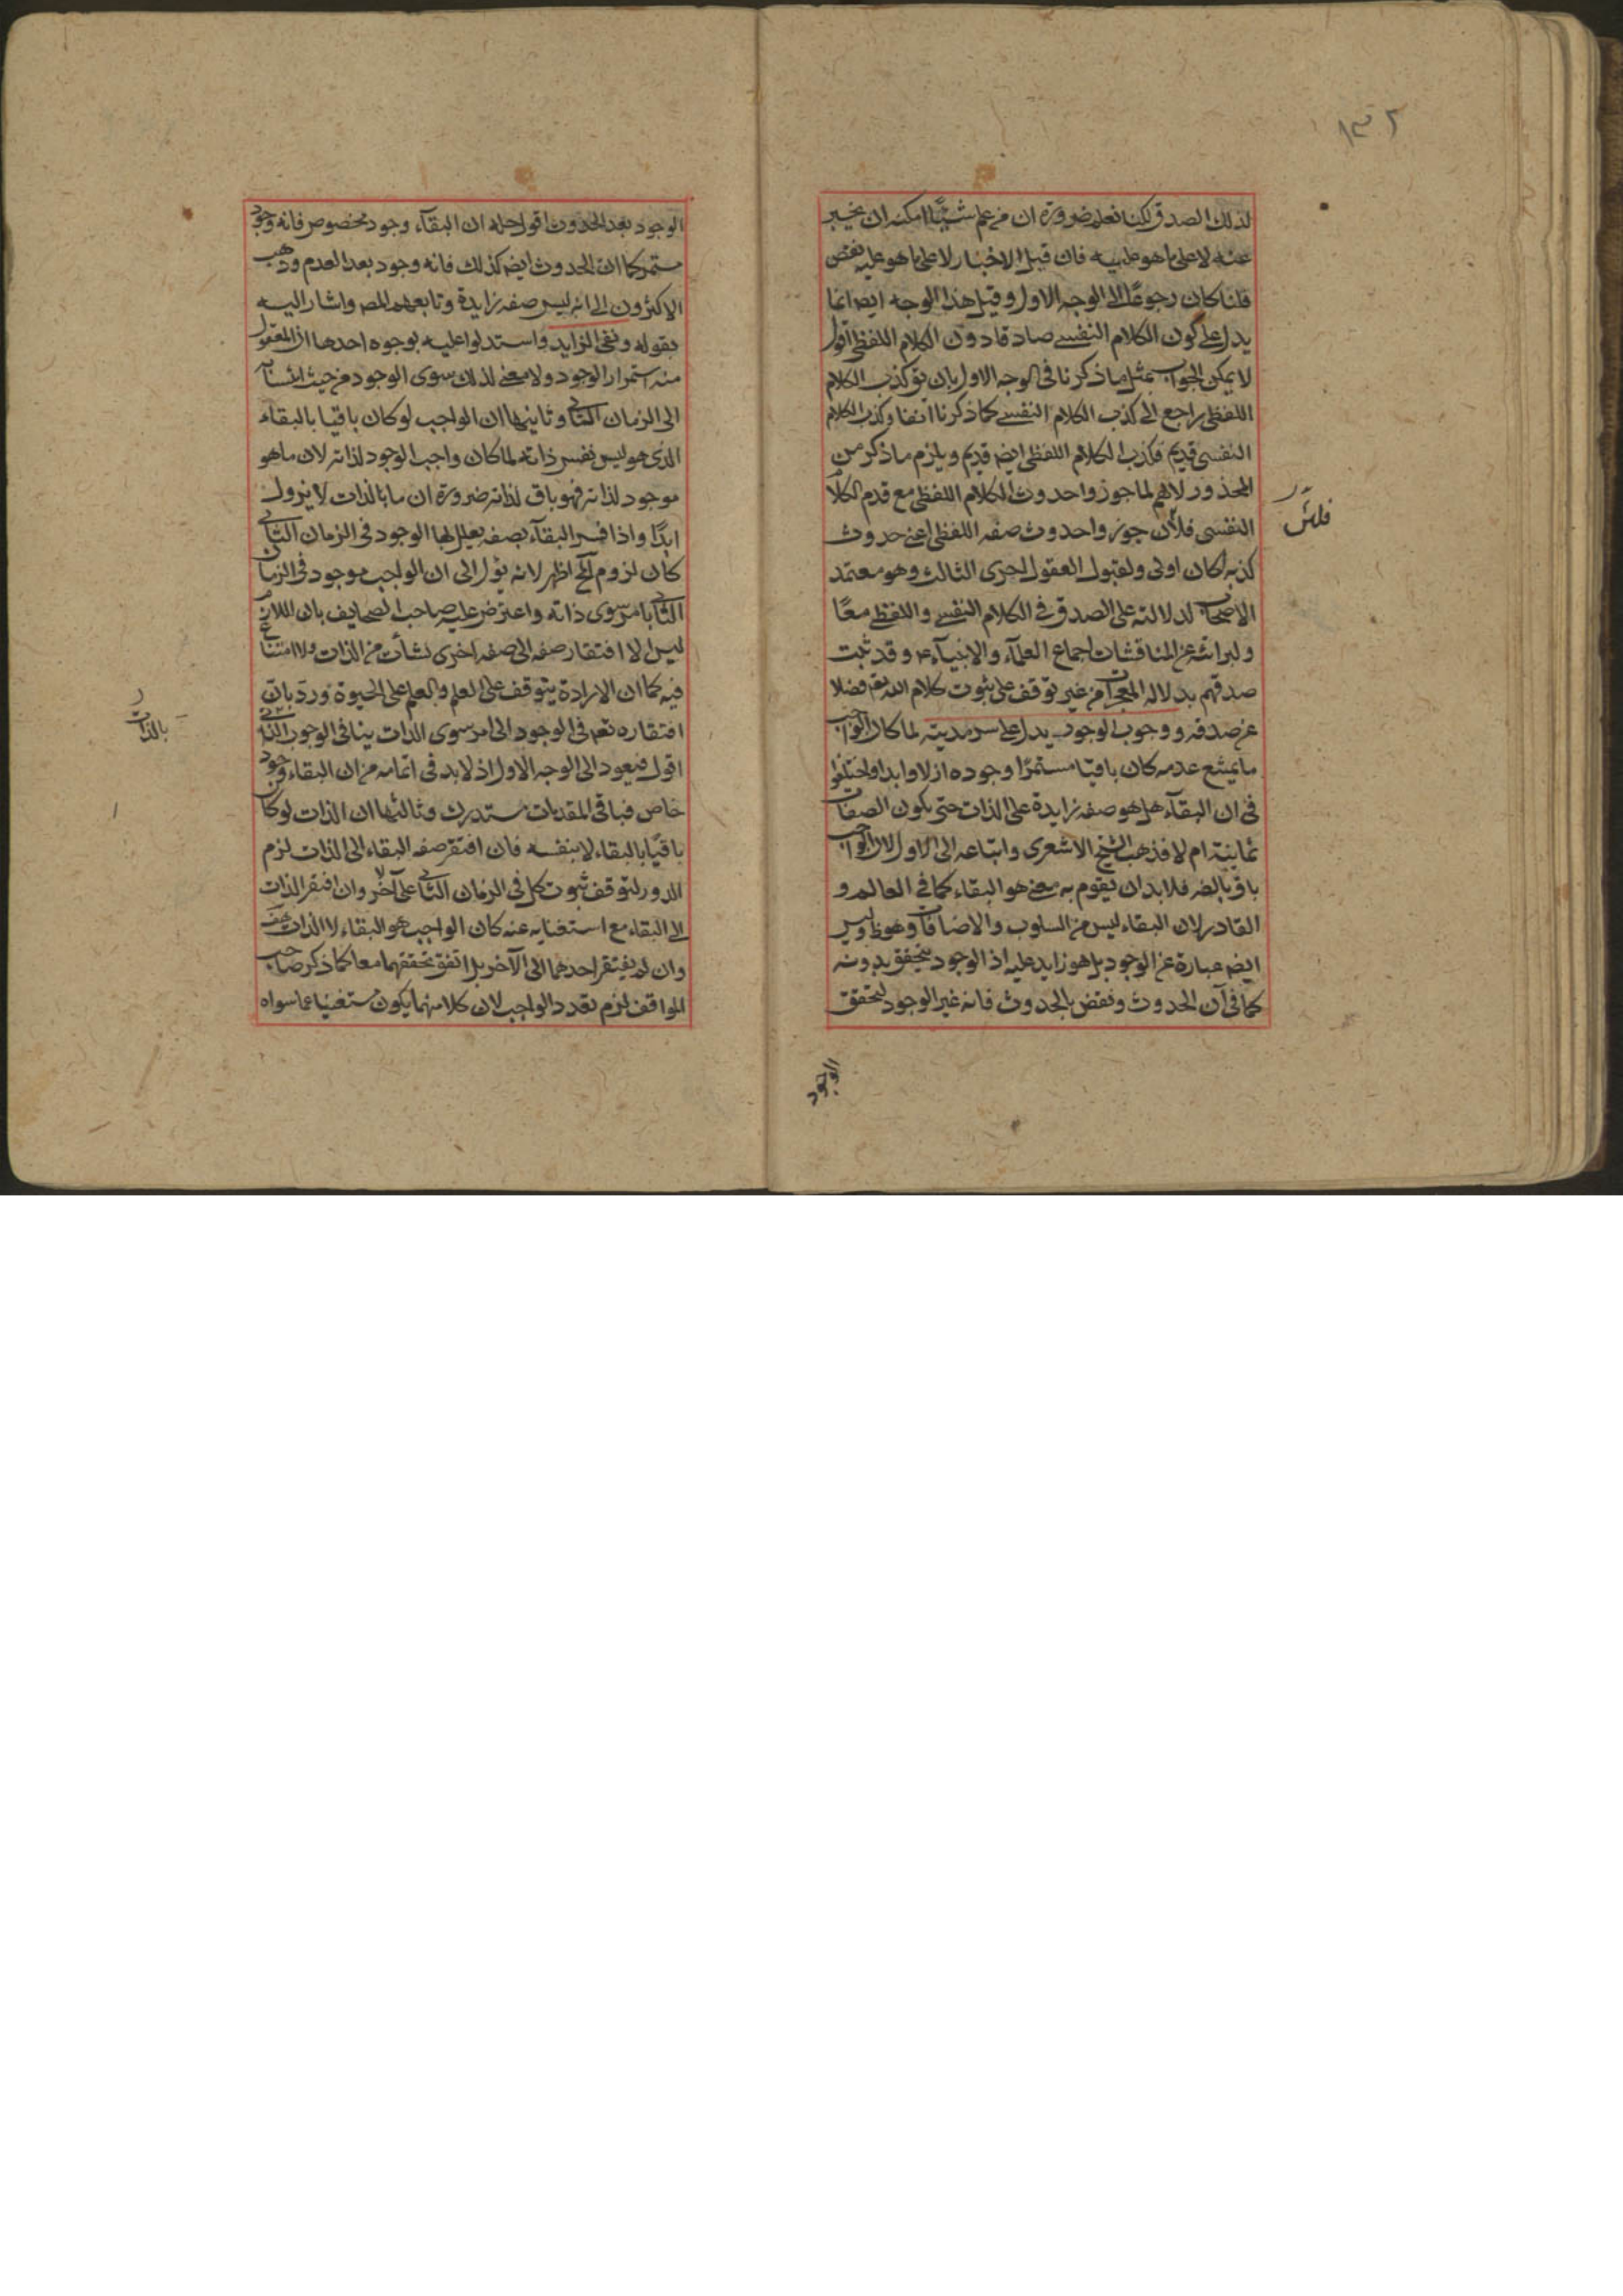 ١٣٢
لذلك الصدق لكنا نعلم ضرورة ان من علم شيئا امكنه ان يخبر
عنه لا على ما هو عليه فان قيل الاخبار لا على ما هو عليه نقص
قلنا كان رجوعا الى الوجه الاول وقيل هذا الوجه ايضا انما
يدل على كون الكلام النفسى صادقا دون الكلام اللفظى اقول
لا يمكن الجواب بمثل ما ذكرنا فى الوجه الاول بان كذب الكلام
اللفظى راجع الى كذب الكلام النفسى كما ذكرنا انفا وكذب الكلام
النفسى قديم فكذب الكلام اللفظى ايضا قديم ويلزم ما ذكر من
المحذور لانهم لما جوزوا حدوث الكلام اللفظى مع قدم الكلام
النفسى فلان جوزوا حدوث صفه اللفظى اعنى حدوث
كذبه لكان اولى ولقبول العقول احرى الثالث وهو معتمد
الاصحاب لدلالته على الصدق فى الكلام النفسى واللفظى معا
ولبرائته عن المناقشات اجماع العلمآء والانبيآء ع وقد ثبت
صدقهم بدلاله المعجزات من غير توقف على ثبوت كلام الله تعه فضلا
عن صدقه ووجوب الوجود يدل على سرمديته لما كان الواجب
ما يمتنع عدمه كان باقيا مستمرا وجوده ازلا وابدا واختلفوا
فى ان البقآء هل هو صفه زايدة على الذات حتى يكون الصفات
ثمانية ام لا فذهب الشيخ الاشعرى واتباعه الى الاول لان الواجب
باق بالضه فلابد ان يقوم به معنى هو البقاء كما فى العالم و
القادر لان البقاء ليس من السلوب والاضافات وهو ظ وليس
ايضه عبارة عن الوجود بل هو زايد عليه اذ الوجود يتحقق بدونه
كما فى آن الحدوث ونقض بالحدوث فانه غير الوجود لتحقق
الوجود
الوجود بعد الحدوث اقول حله ان البقآء وجود مخصوص فانه وجود
مستمر كما ان الحدوث ايضه كذلك فانه وجود بعد العدم وذهب
الاكثرون الى انه ليس صفه زايدة وتابعهم المصه واشار اليه
بقوله ونفى الزايد واستدلوا عليه بوجوه احدها ان المعقول
منه استمرار الوجود ولا معنى لذلك سوى الوجود من حيث انتسابه
الى الزمان الثانى وثانيها ان الواجب لو كان باقيا بالبقاء
الذى هو ليس نفس ذاته لما كان واجب الوجود لذاته لان ما هو
موجود لذاته فهو باق لذاته ضرورة ان ما بالذات لا يزول
ابدا واذا فسر البقآء بصفه يعلل بها الوجود فى الزمان الثانى
كان لزوم المح اظهر لانه يؤل الى ان الواجب موجود فى الزمان
الثانى بامر سوى ذاته واعترض عليه صاحب الصحايف بان اللازم
ليس الا افتقار صفه الى صفه اخرى نشأت من الذات ولا امتناع
فيه كما ان الارادة يتوقف على العلم والعلم على الحيوة ورد بان
افتقاره تعه فى الوجود الى امر سوى الذات ينافى الوجوب
بالذات
اقول فيعود الى الوجه الاول اذ لابد فى اتمامه من ان البقاء وجود
خاص فباقى المقدمات مستدرك وثالثها ان الذات لو كان
باقيا بالبقاء لا بنفسه فان افتقر صفه البقاء الى الذات لزم
الدور لتوقف ثبوت كل فى الزمان الثانى على الآخر وان افتقر الذات
الى البقاء مع استغنايه عنه كان الواجب هو البقاء لا الذات هف
وان لم يفتقر احدهما الى الآخر بل اتفق تحققهما معا كما ذكر صاحب
المواقف لزم تعدد الواجب لان كلا منهما يكون مستغنيا عما سواه